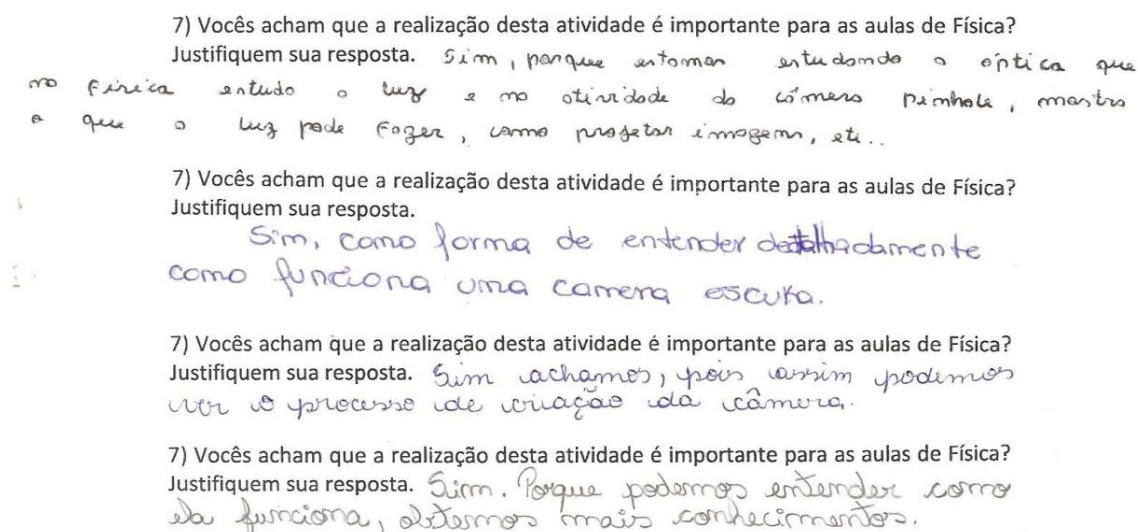 7) Vocês acham que a realização desta atividade é importante para as aulas de Física?
Justifiquem sua resposta. Sim, porque estamos estudando a óptica que
na Física estuda a luz e na atividade da câmera Pinhole, mostra
o que a luz pode fazer, como projetar imagens, etc..
7) Vocês acham que a realização desta atividade é importante para as aulas de Física?
Justifiquem sua resposta.
Sim, como forma de entender detalhadamente
como funciona uma camera escura.
7) Vocês acham que a realização desta atividade é importante para as aulas de Física?
Justifiquem sua resposta. Sim achamos, pois assim podemos
ver o processo de criação da câmera.
7) Vocês acham que a realização desta atividade é importante para as aulas de Física?
Justifiquem sua resposta. Sim. Porque podemos entender como
ela funciona, obtemos mais conhecimentos.